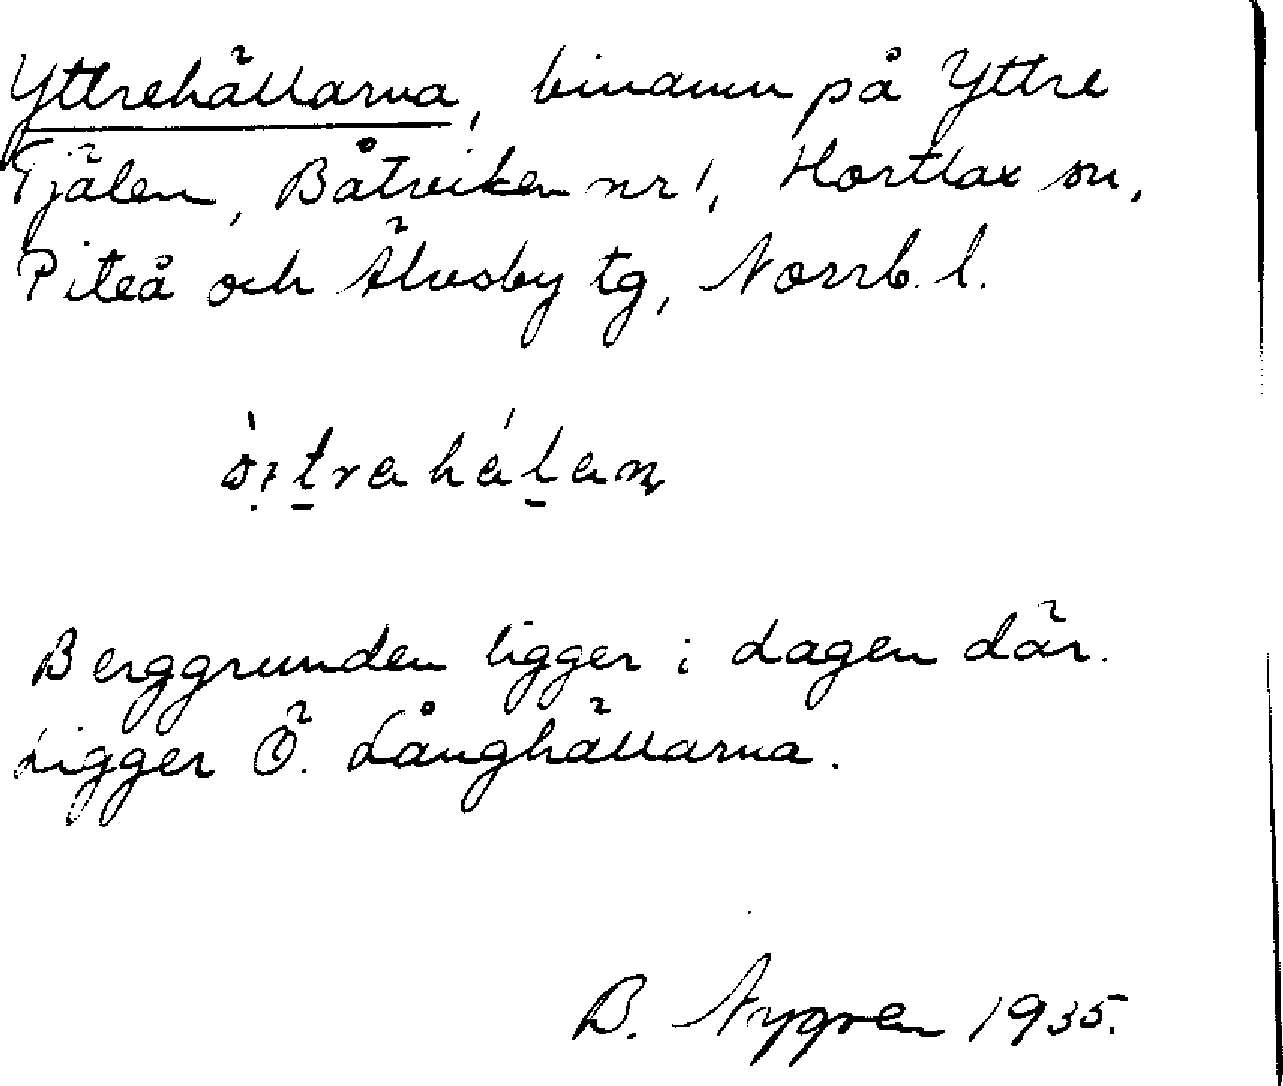 Yttrehällarna, binamn på Yttre
Tjälen, Båtviken nr 1, Hortlax sn,
Piteå och Älvsby tg, Norrb. l.
Berggrunden ligger i dagen där.
Ligger Ö. Långhällarna.
B. Nygren 1935.